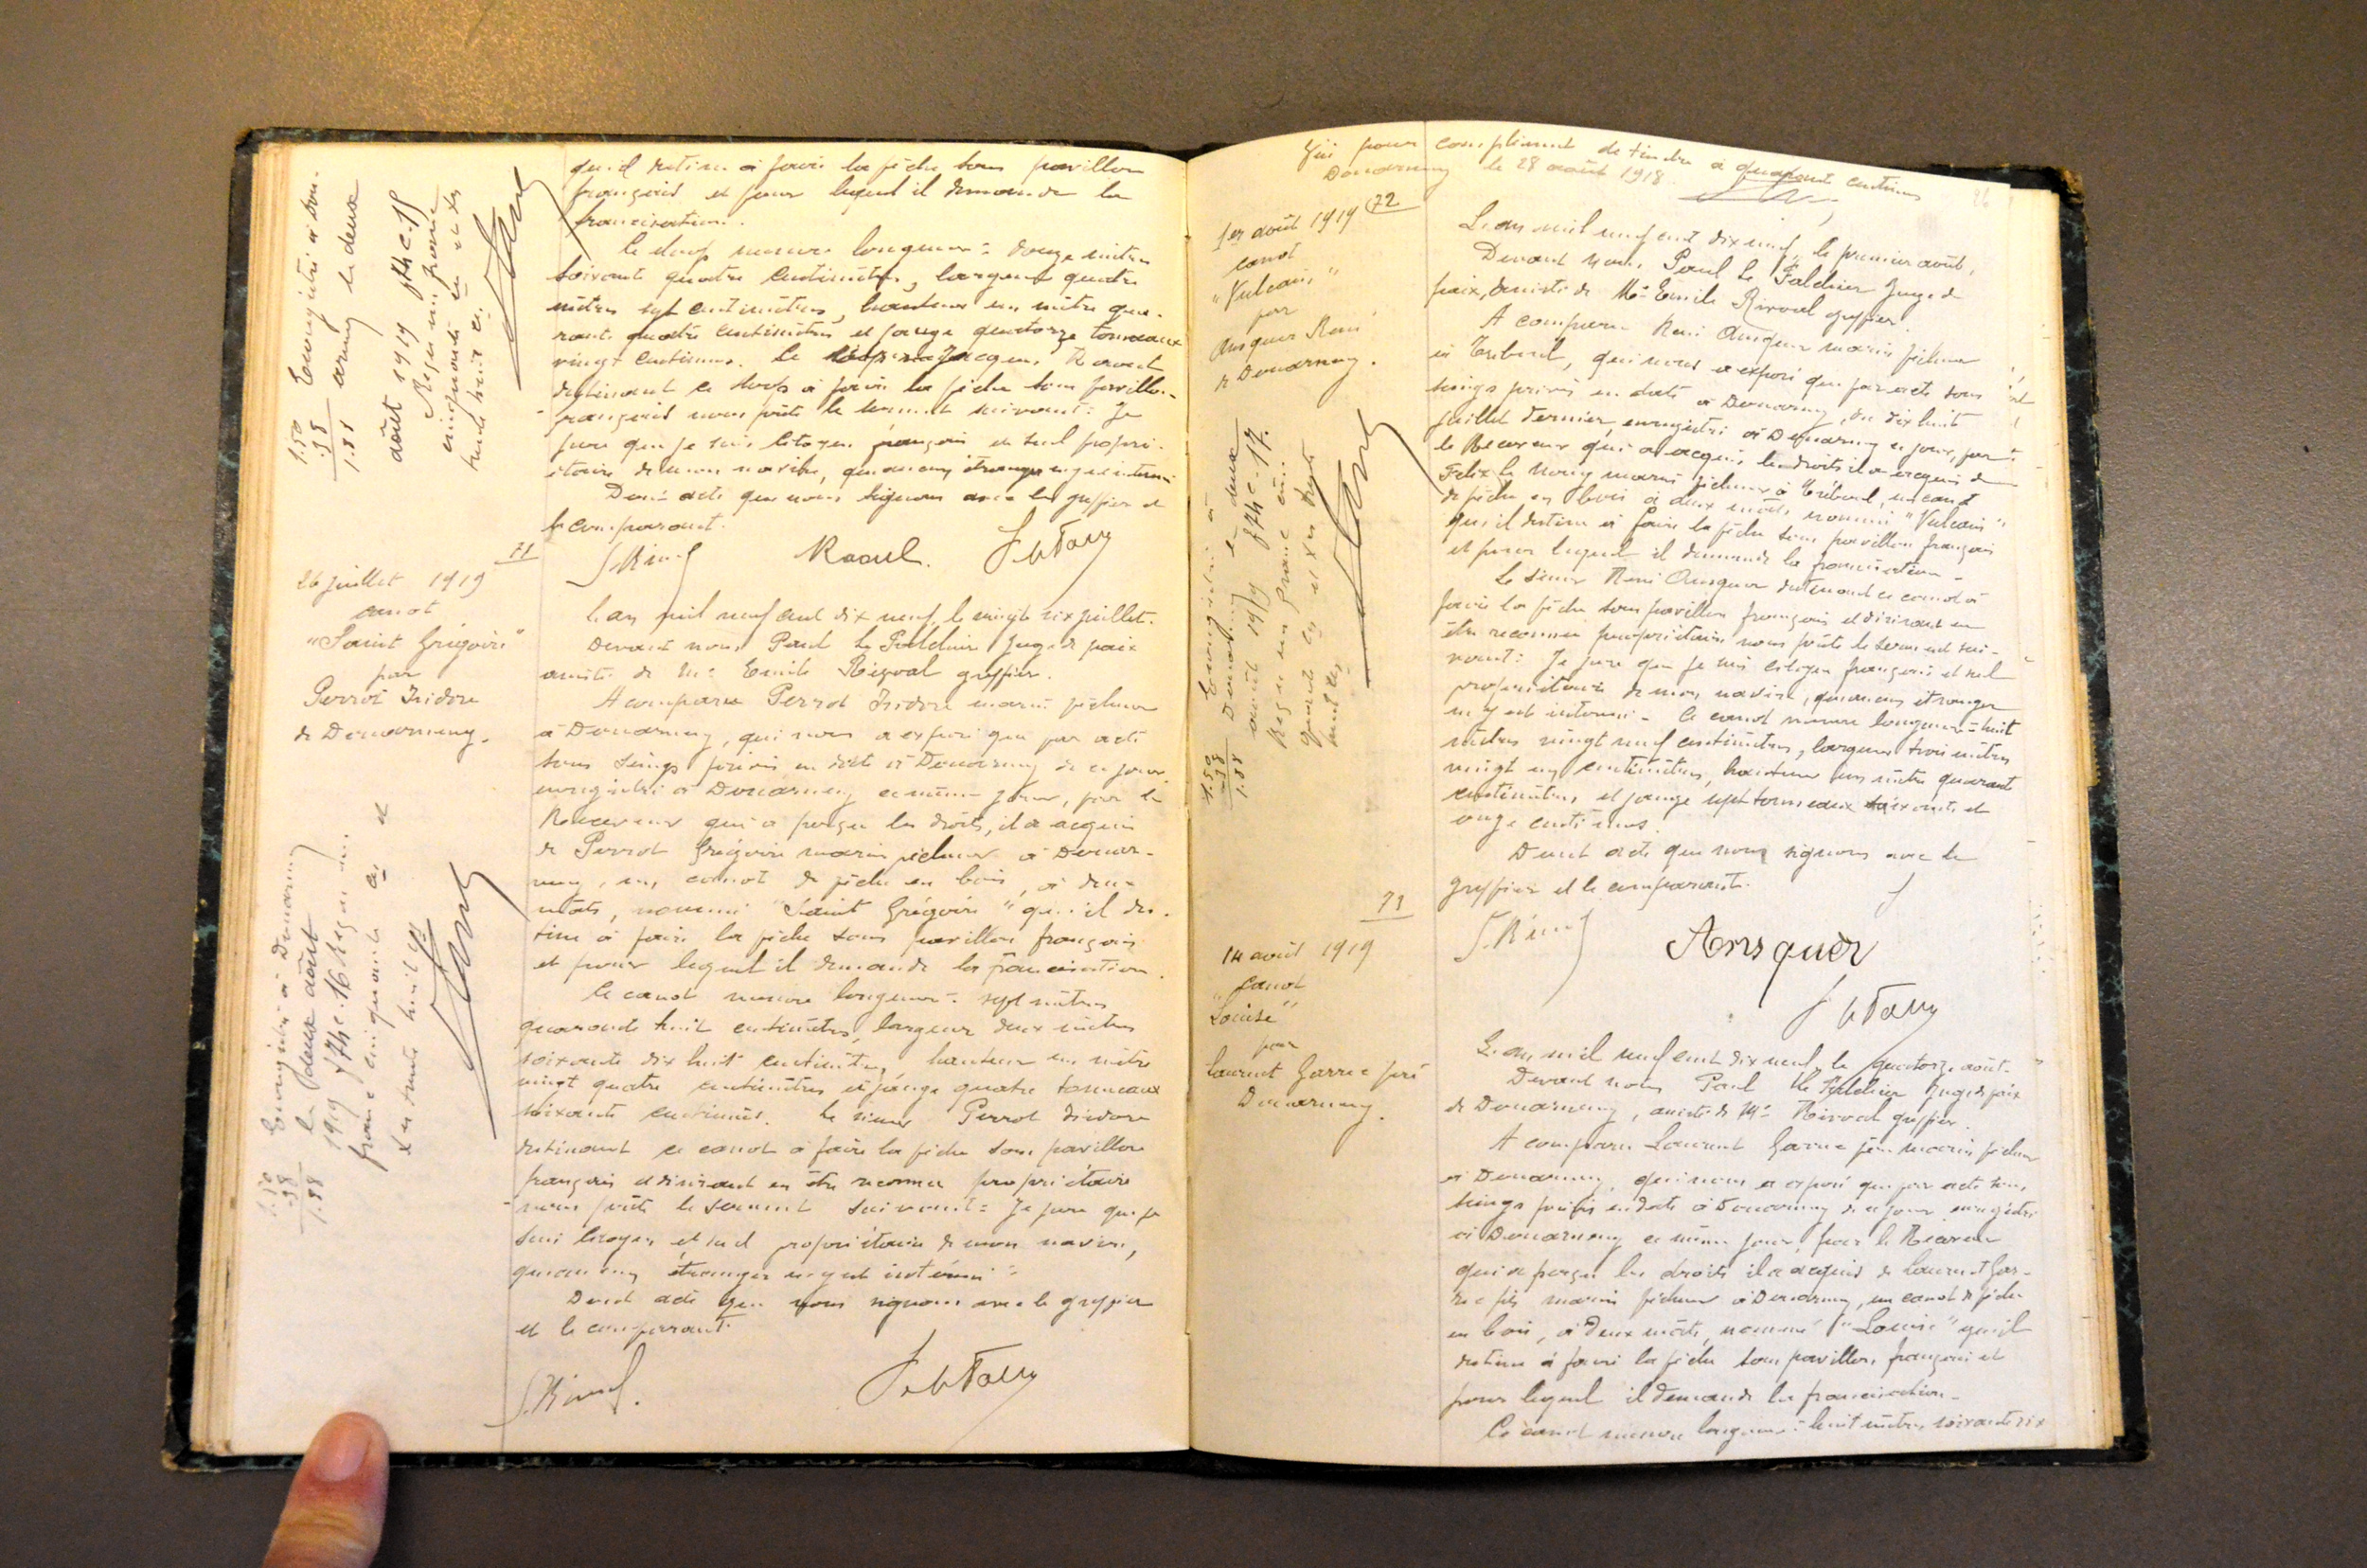 qu'il destine à faire la pêche sous pavillon
français et pour lequel il demande la
francisation.
Le sloop mesure longueur : douze mètres
soixante quatre centimètres, largeur quatre
mètres sept centimètres, hauteur un mètre qua-
rante quatre centimètres et jauge quatorze tonneaux
vingt centièmes. Le Jacques Raoul
destinant ce sloop à faire la pêche sous pavillon
français nous prête le serment suivant : Je
jure que je suis citoyen français et seul propri-
étaire de mon navire, qu'aucun étranger n'y est intéressé
Dont acte que nous signons avec le greffier et
le comparant.
Raoul.
Enregistré à Dou-
arnenez le deux
août 1919 f 74 c. 15
Reçu un franc
cinquante
trente huit cs
1.50
.38
1.88
71
26 juillet 1919
canot
"Saint Grégoire"
par
Perrot Isidore
de Douarnenez.
L'an mil neuf cent dix neuf, le vingt six juillet.
Devant nous Paul Le Faldier Juge de paix
assisté de Me Emile Rivoal greffier.
A comparu Perrot Isidore marin pêcheur
à Douarnenez, qui nous a exposé que par acte
sous seings privés en date à Douarnenez de ce jour
enregistré à Douarnenez ce même jour, par le
Receveur qui a perçu les droits, il a acquis
de Perrot Grégoire marin pêcheur à Douar-
nenez, un canot de pêche en bois, à deux
mâts, nommé "Saint Grégoire" qu'il des-
tine à faire la pêche sous pavillon français
et pour lequel il demande la francisation.
Le canot mesure longueur : sept mètres
quarante huit centimètres, largeur deux mètres
soixante dix huit centimètres, hauteur un mètre
vingt quatre centimètres et jauge quatre tonneaux
soixante centièmes. Le sieur Perrot Isidore
destinant ce canot à faire la pêche sous pavillon
français et désirant en être reconnu propriétaire
nous prête le serment suivant : Je jure que je
suis citoyen et seul propriétaire de mon navire,
qu'aucun étranger n'y est intéressé
Dont acte que nous signons avec le greffier
et le comparant.
Enregistré à Douarnenez
le deux août
1919 f 74 c. 16 Reçu un
franc cinquante cs et
trente huit cs
1.50
.38
1.88
pour complément de timbre à quarante centimes
Douarnenez le 28 août 1918.
26
72
1er août 1919
canot
"Vulcain"
par
Ansquer René
de Douarnenez.
L'an mil neuf cent dix neuf, le premier août,
Devant nous Paul Le Faldier Juge de
paix, assisté de Me Emile Rivoal greffier.
A comparu René Ansquer marin pêcheur
à Tréboul, qui nous a exposé que par acte sous
seings privés en date à Douarnenez, du dix huit
juillet dernier, enregistré à Douarnenez ce jour, par
le Receveur qui a acquis les droits il a acquis de
Félix Le marin pêcheur à Tréboul, un canot
de pêche en bois à deux mâts, nommé "Vulcain"
qu'il destine à faire la pêche sous pavillon français
et pour lequel il demande la francisation.
Le sieur René Ansquer destinant ce canot à
faire la pêche sous pavillon français et désirant en
être reconnu propriétaire nous prête le serment sui-
vant : Je jure que je suis citoyen français et seul
propriétaire de mon navire, qu'aucun étranger
n'y est intéressé. Le canot mesure longueur : huit
mètres vingt neuf centimètres, largeur trois mètres
vingt un centimètres, hauteur un mètre quarante
centimètres, et jauge sept tonneaux soixante et
onze centièmes.
Dont acte que nous signons avec le
greffier et le comparant.
Ansquer
Enregistré à
Douarnenez le deux
août 1919 f 74 c. 17.
Reçu un franc cin-
quante cs et trente
huit cs
1.50
.38
1.88
73
14 août 1919
canot
"Louise"
par
Laurent Garrec père
Douarnenez.
L'an mil neuf cent dix neuf, le quatorze août.
Devant nous Paul Le Faldier Juge de paix
de Douarnenez, assisté de Me Rivoal greffier.
A comparu Laurent Garrec père marin pêcheur
à Douarnenez, qui nous a exposé que par acte sous
seings privés en date à Douarnenez de ce jour enregistré
à Douarnenez ce même jour, par le Receveur
qui a perçu les droits il a acquis de Laurent Gar-
rec fils marin pêcheur à Douarnenez, un canot de pêche
en bois, à deux mâts, nommé "Louise" qu'il
destine à faire la pêche sous pavillon français et
pour lequel il demande la francisation.
Le canot mesure longueur : huit mètres soixante six